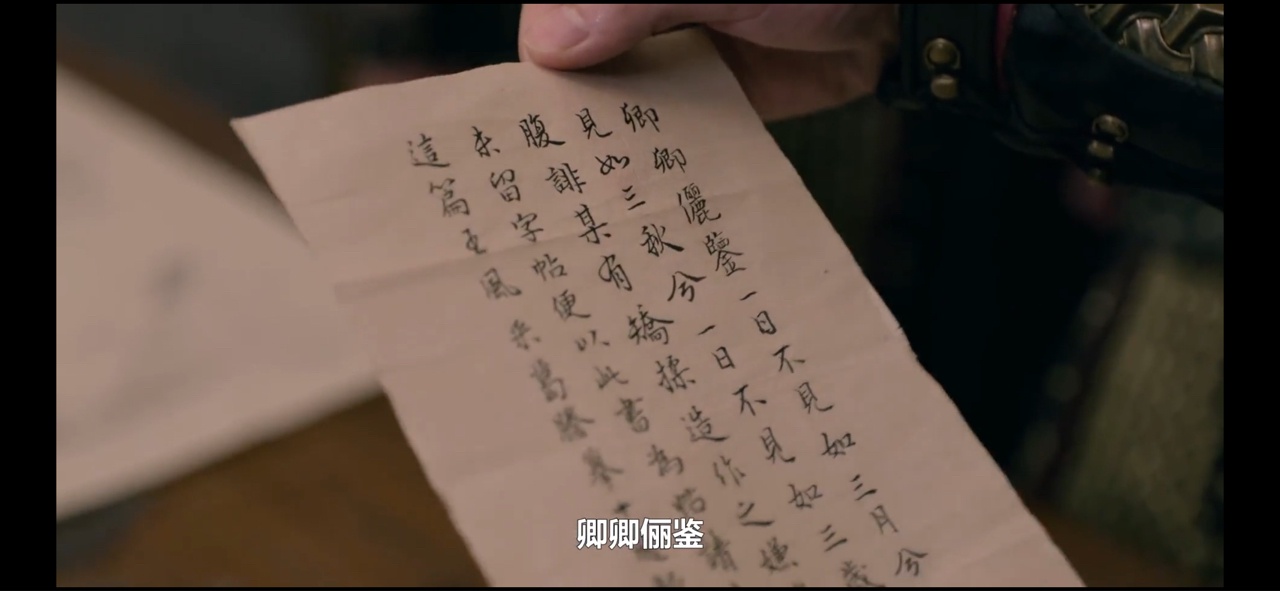 卿卿儷鑒一日不見如三月兮
見如三秋兮一日不見如三歲
腹誹某有矯揉造作之嫌
未留字帖便以此書為帖請
這篇王風采葛謄摹十
卿卿俪鉴